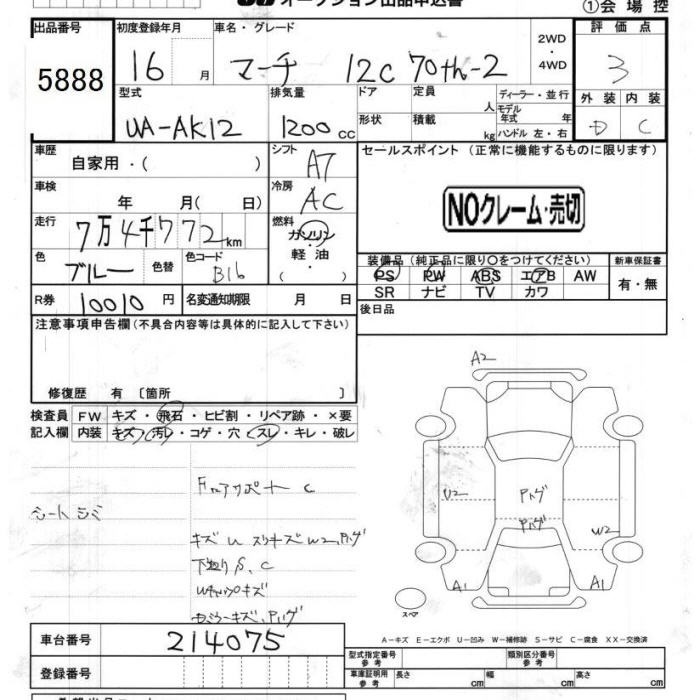 オークション出品申込書 ①会場控
出品番号 初度登録年月 車名・グレード 2WD・4WD 評価点
5888 16月 マーチ 12C 70th-2 3
型式 排気量 ドア 定員 人 ディーラー・並行 外装 内装
UA-AK12 1200cc 形状 積載 kg モデル年式 年 ハンドル 左・右 D C
車歴 自家用・( ) シフト AT セールスポイント (正常に機能するものに限ります)
車検 年 月( 日) 冷房 AC NOクレーム・売切
走行 7万4千772km 燃料 ガソリン・軽油・( )
色 ブルー 色替 色コード B16 装備品(純正品に限り○をつけてください) 新車保証書
PS PW ABS エアB AW 有・無
SR ナビ TV カワ
R券 10010円 名変通知期限 月 日 後日品
注意事項申告欄(不具合内容等は具体的に記入して下さい)
修復歴 有 〔箇所 〕
検査員 FW キズ・飛石・ヒビ割・リペア跡・×要
記入欄 内装 キズ・汚レ・コゲ・穴・スレ・キレ・破レ
シートシミ
F コアサポート C
キズ U スリキズ W2, Pハゲ
下廻り S, C
キズ, Pハゲ
A2
U2 Pハゲ
Pハゲ W2
A1 A1
スペア
A-キズ E-エクボ U-凹み W-補修跡 S-サビ C-腐食 XX-交換済
車台番号 214075 型式指定番号 参考 類別区分番号 参考
登録番号 車庫証明用 参考 長さ cm 幅 cm 高さ cm